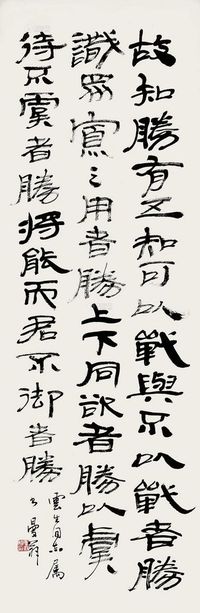 故知勝有五知可以戰與不以戰者勝
識眾寡之用者勝上下同欲者勝以虞
待不虞者勝將能而君不御者勝
雲生同志屬
曼翁